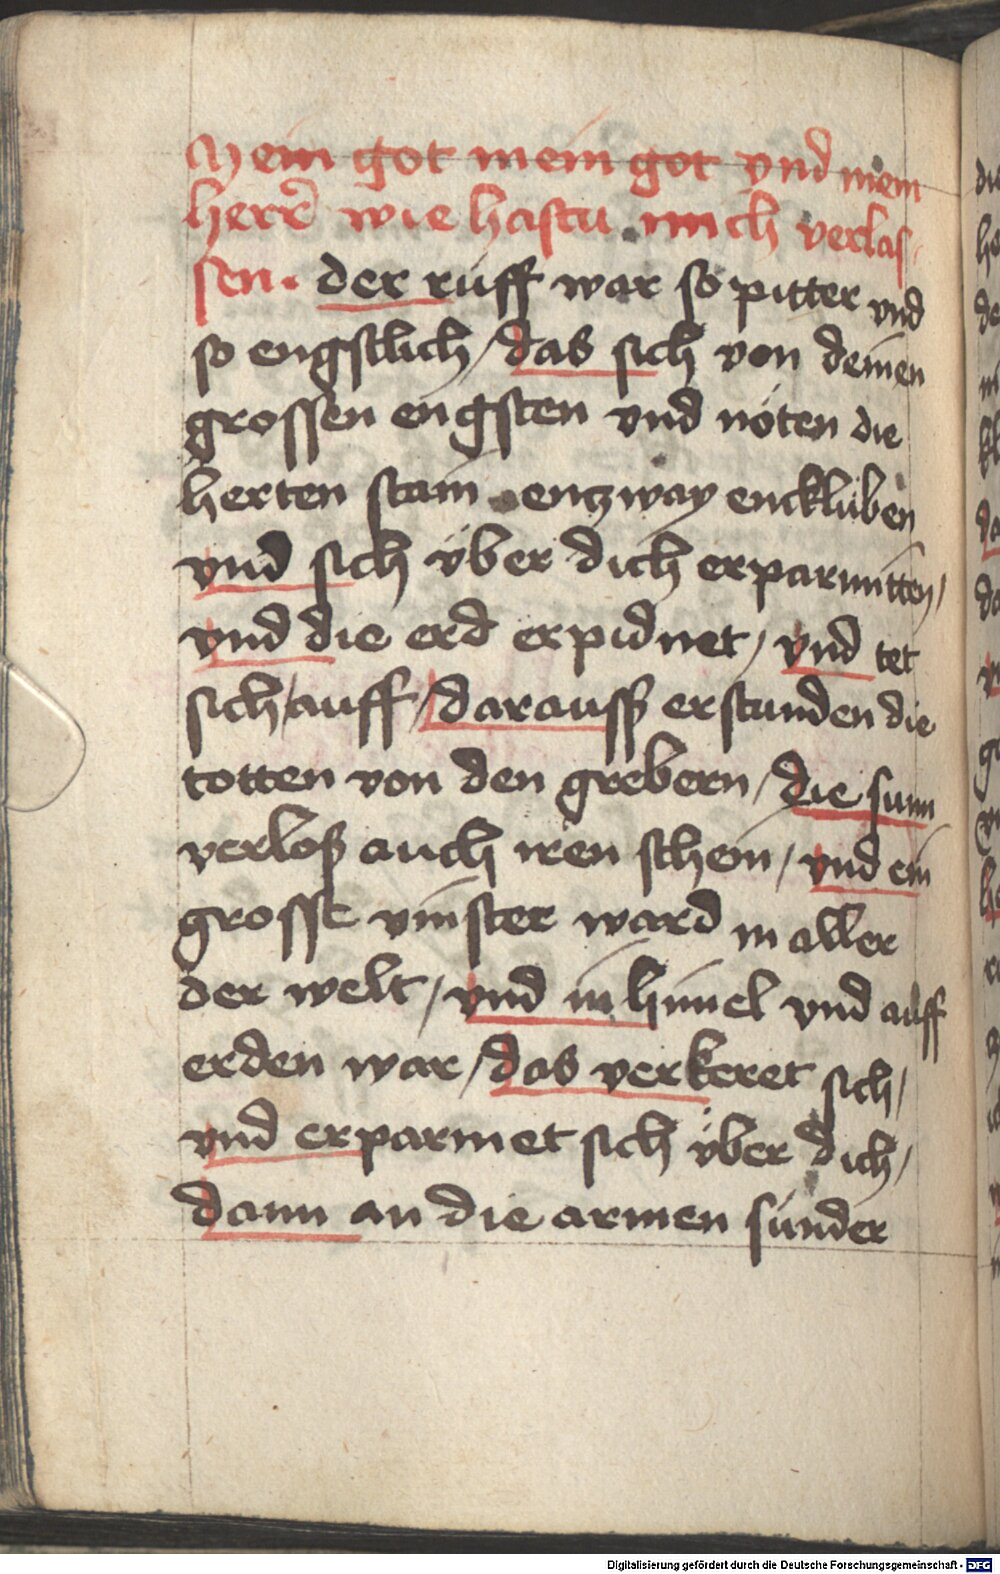 Mein got mein got vnd mein
herr wie hastu mich verlas-
sen. der rüff war so pitter vnd
so engstlich / das sich von deinen
grossen engsten vnd nöten die
herten stain entzway encklüben
vnd sich über dich erparmitten /
vnd die erd erpidnet / vnd tet
sich / auff / darauss erstunden die
totten von den grebern / die sunn
verloß auch iren schein / vnd ein
grosse vinster ward in aller
der welt / vnd in himel vnd auff
erden war / das verkeret sich /
vnd erparmet sich über dich /
dann an die armen sünder
Digitalisierung gefördert durch die Deutsche Forschungsgemeinschaft - DFG